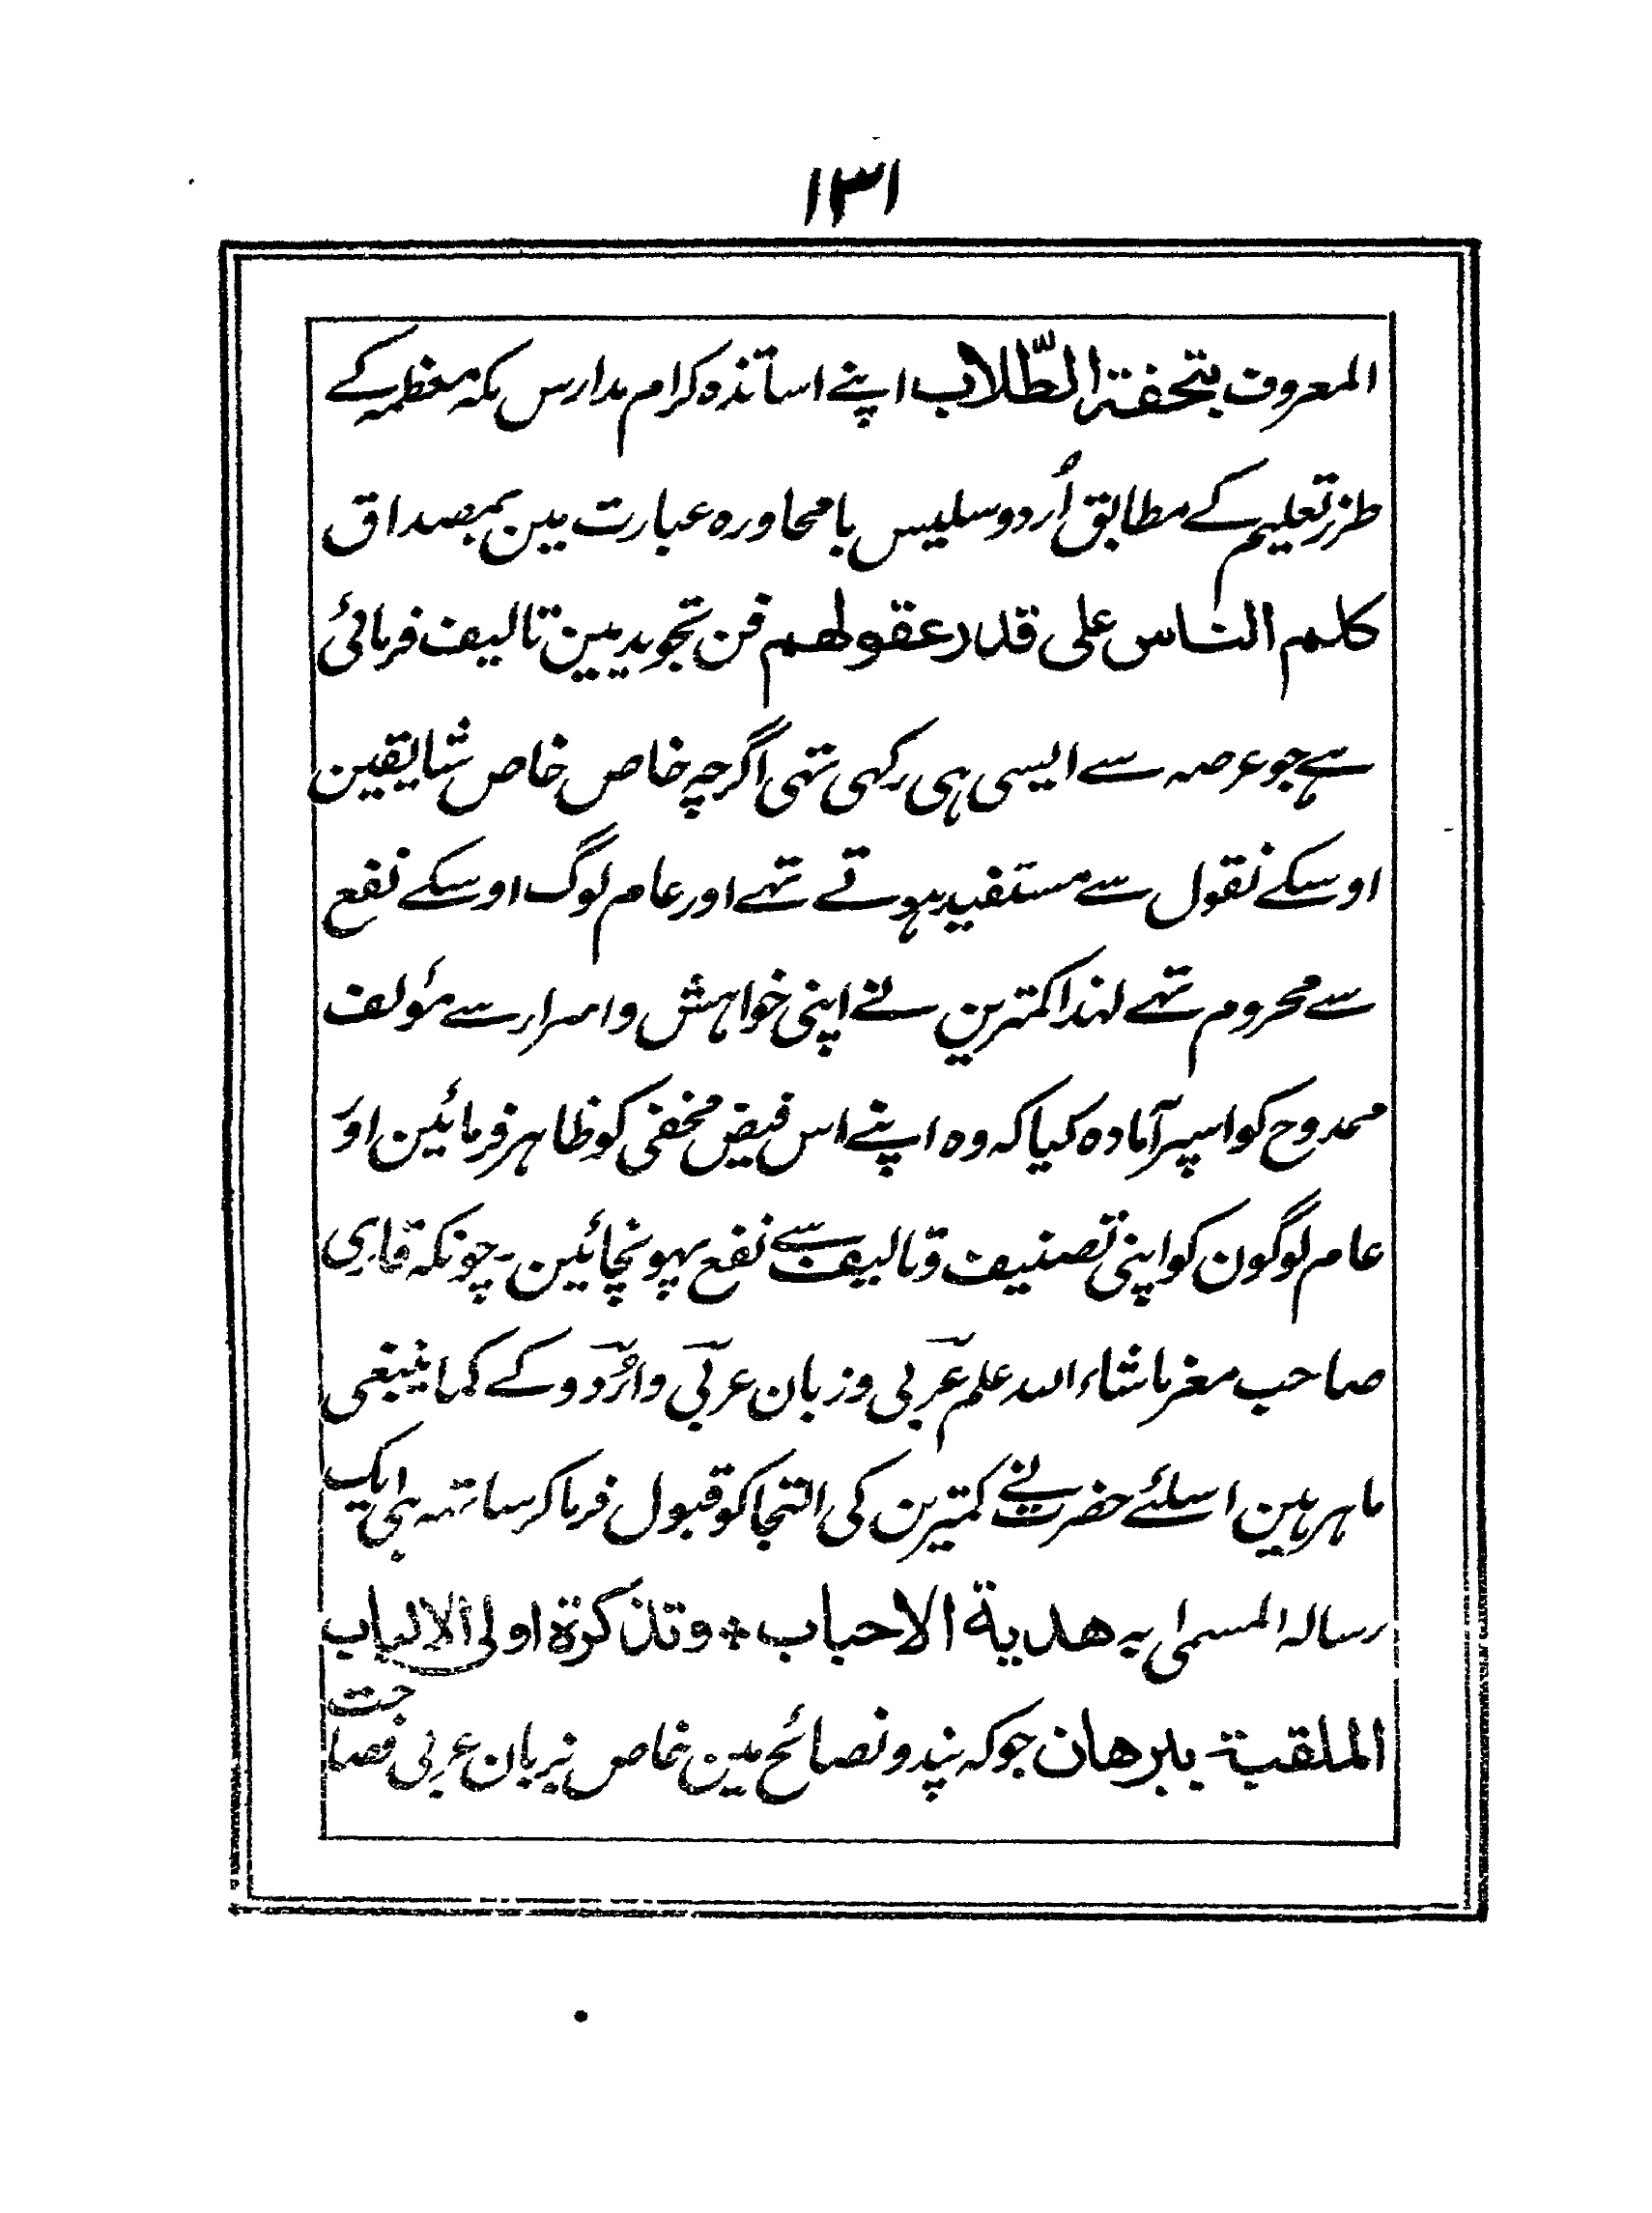 ١٣١
المعروف بتحفۃ الطّلاب اپنے اساتذہ کرام مدارس مکہ معظمہ کے
طرز تعلیم کے مطابق اُردو سلیس با محاورہ عبارت مین بمصداق
کلم الناس علی قدر عقولھم فن تجوید مین تالیف فرمائی
ہے جو عرصہ سے ایسی ہی رکہی تہی اگرچہ خاص خاص شایقین
اوسکے نقول سے مستفید ہوتے تہے اور عام لوگ اوسکے نفع
سے محروم تہے لہذا کمترین نے اپنی خواہش و اصرار سے مؤلف
ممدوح کو اسپر آمادہ کیا کہ وہ اپنے اس فیض مخفی کو ظاہر فرمائین اور
عام لوگون کو اپنی تصنیف و تالیف سے نفع پہونچائین۔ چونکہ قاری
صاحب مغز ماشاء اللہ علم عربی و زبان عربی و اُردو کے کما ینبغی
ماہر ہین اسلئے حضرت نے کمترین کی التجا کو قبول فرما کر ساتہہ ہی ایک
رسالہ المسمی بہ ھدیة الاحباب ٭ و تذکرة اولی الالباب
الملقبة ببرھان جو کہ پند و نصائح مین خاص بزبان عربی فصاحت